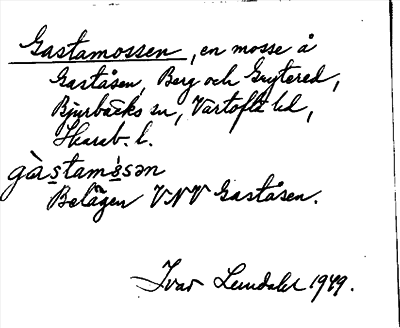 Gastamossen, en mosse å
Gaståsen, Berg och Grytered,
Bjurbäcks sn, Vartofta hd,
Skarab. l.
gàs̲tamòs̲sən
Belägen VNV Gaståsen.
Ivar Lundahl 1949.